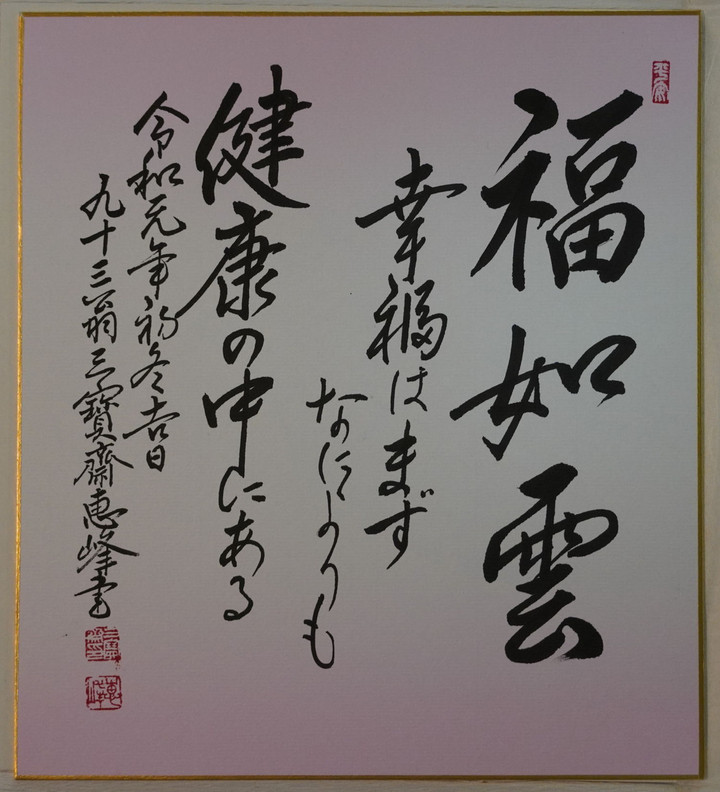 福如雲
幸福はまず
なによりも
健康の中にある
令和元年初冬吉日
九十三翁三寶齋恵峰書